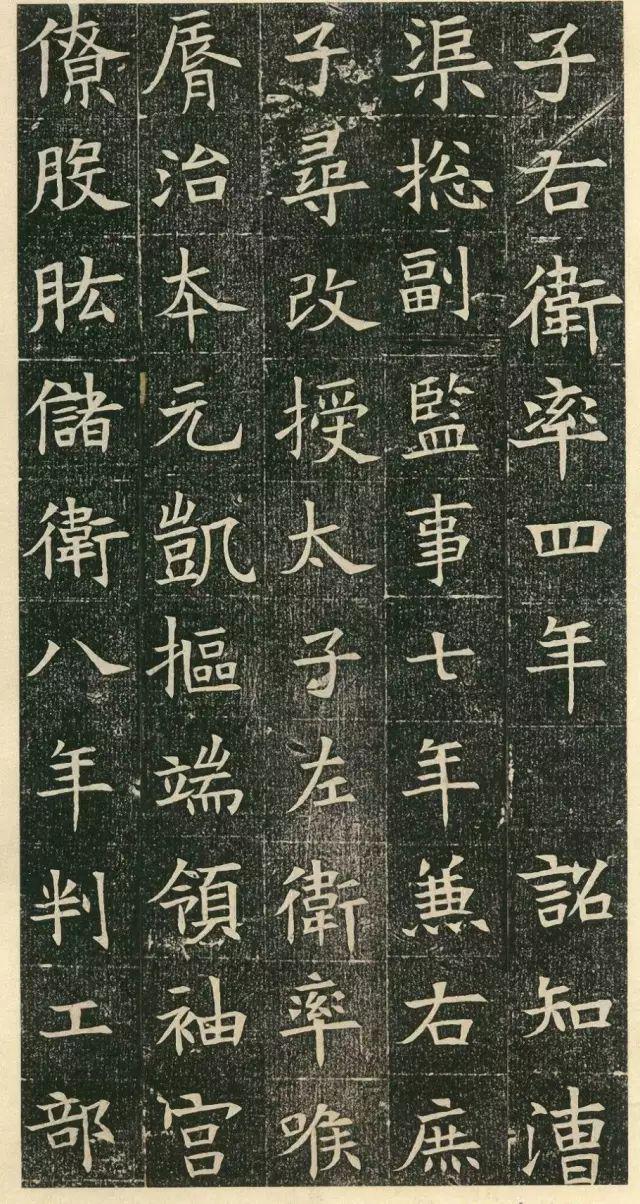 子右衛率四年詔知漕
渠総副監事七年兼右庶
子尋改授太子左衛率喉
脣治本元凱摳端領袖宮
僚股肱儲衛八年判工部